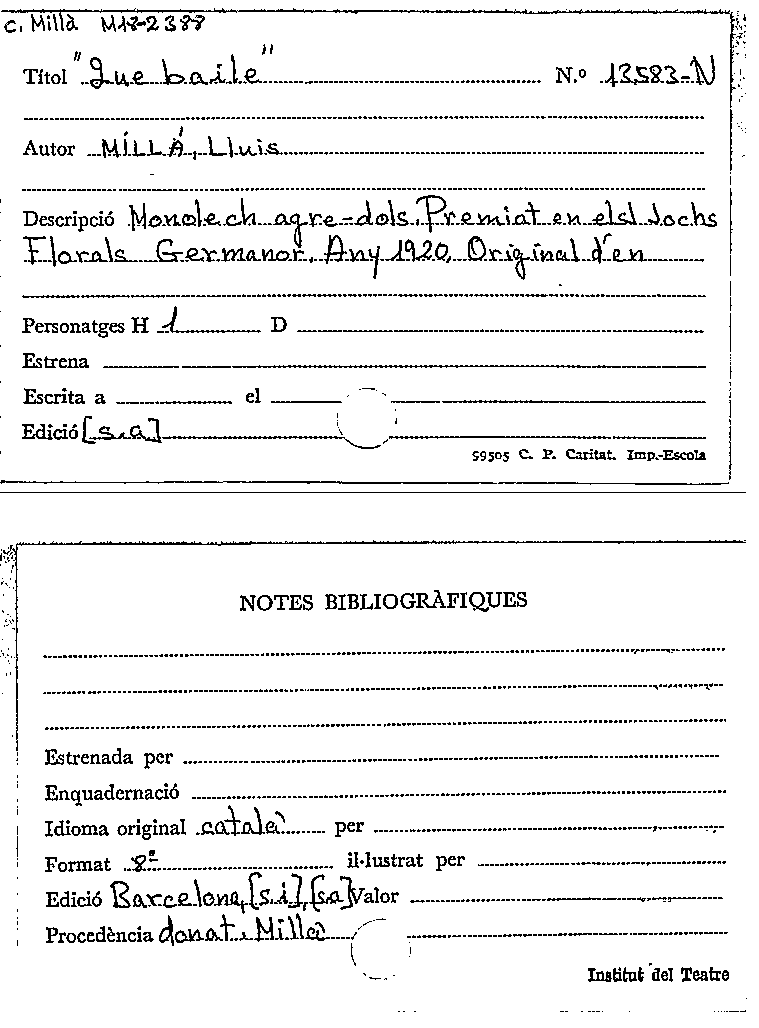 C. Millà M18-2388
Títol "Que baile" N.º 13583-N
Autor MILLÁ, Lluis
Descripció Monolech agre-dols. Premiat en els Jochs
Florals Germanor. Any 1920. Original d'en
Personatges H 1 D
Estrena
Escrita a el
Edició [s.a]
59505 C. P. Caritat. Imp.-Escola
NOTES BIBLIOGRÀFIQUES
Estrenada per
Enquadernació
Idioma original català per
Format 8º il·lustrat per
Edició Barcelona, [s.i], [s.a] Valor
Procedència donat. Millà
Institut del Teatre